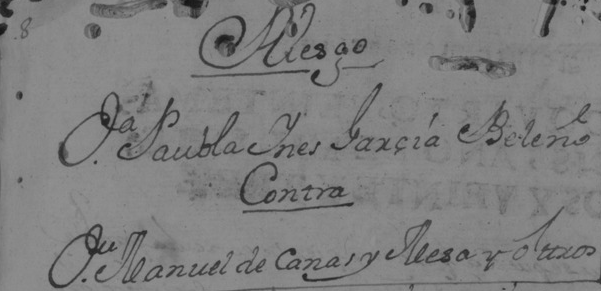 Riesgo
Da. Paula Ines Garçia Beleño
Contra
Dn. Manuel de Canas y Mesa y otros